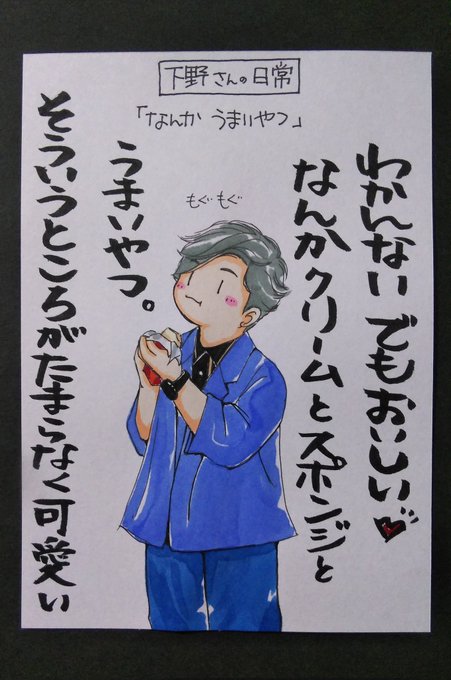 下野さんの日常
「なんか うまいやつ」
わかんない でもおいしい♥
なんかクリームとスポンジと
もぐもぐ
うまいやつ。
そういうところがたまらなく可愛い